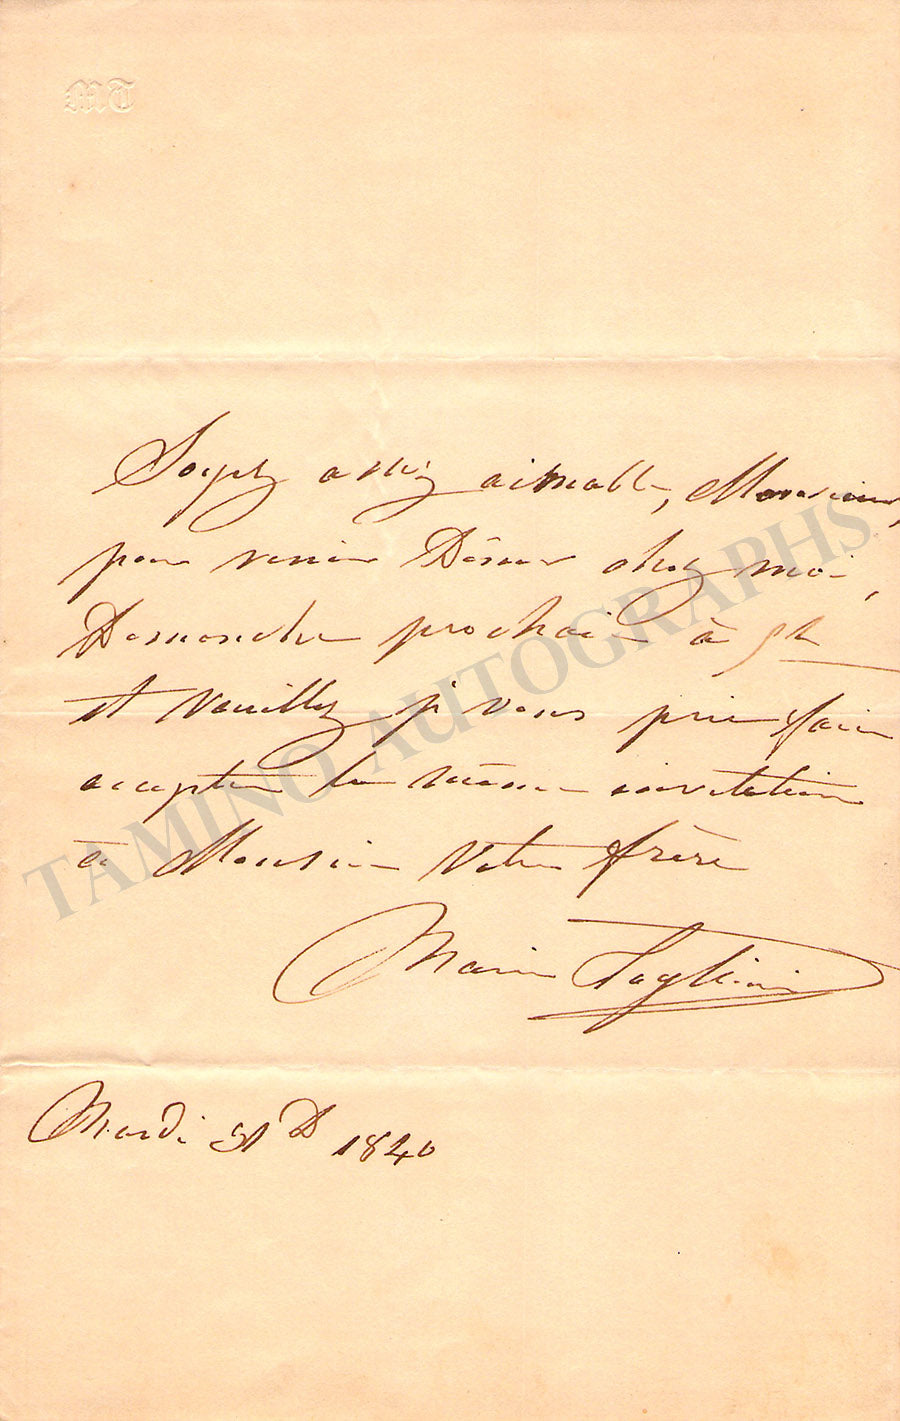 MT
Soyez assez aimable, Monsieur,
pour venir Dîner chez moi,
Dimanche prochain à 5h
et veuillez je vous prie faire
accepter la même invitation
à Monsieur Votre frère
Marie Taglioni
Mardi 31 D 1840
TAMINO AUTOGRAPHS